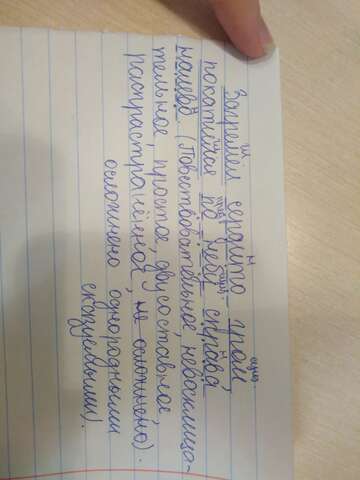 Загремел сердито гром,
покатился по небу справа
налево. (Повествовательное, невосклица-
тельное, простое, двусоставное,
распространённое, не осложнено).
осложнено однородными
сказуемыми).